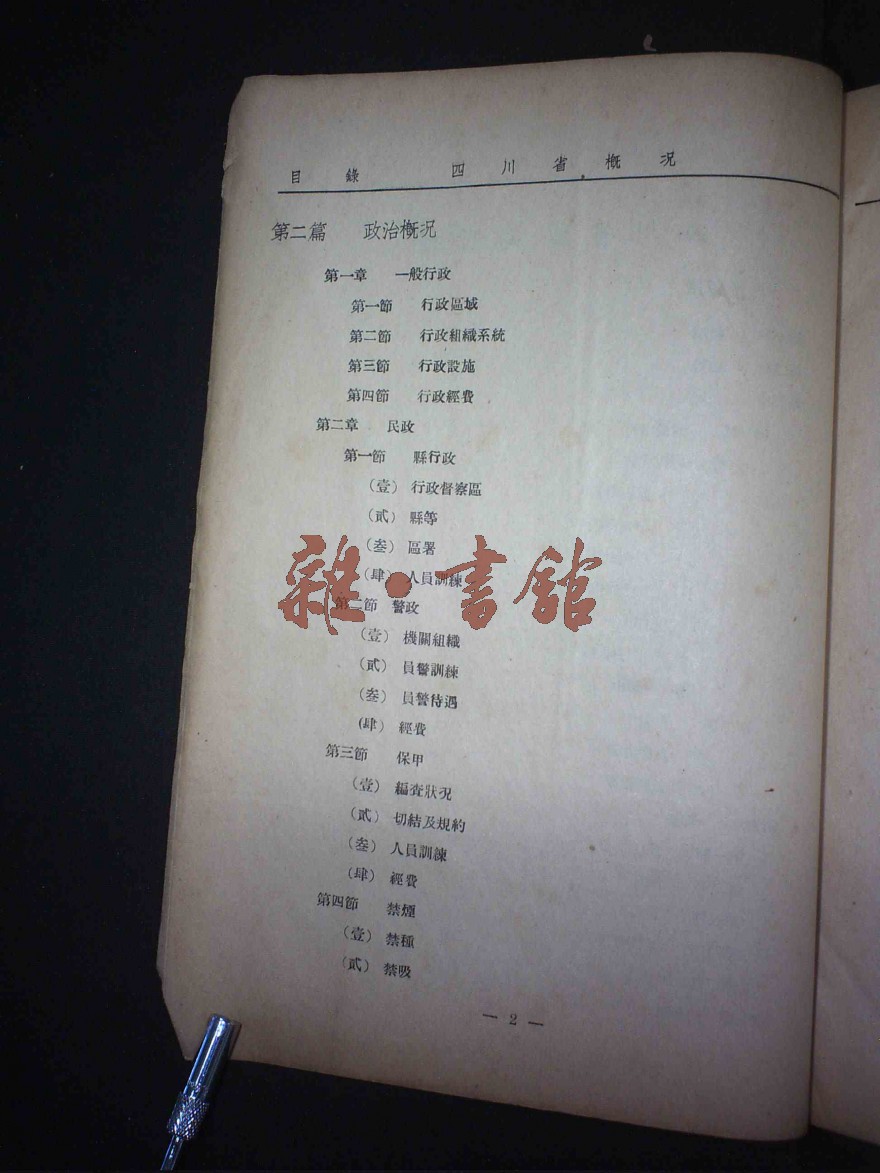 目錄 四川省概况
第二篇 政治概况
第一章 一般行政
第一節 行政區域
第二節 行政組織系統
第三節 行政設施
第四節 行政經費
第二章 民政
第一節 縣行政
（壹）行政督察區
（貳）縣等
（叁）區署
（肆）人員訓練
雜·書館
第二節 警政
（壹）機關組織
（貳）員警訓練
（叁）員警待遇
（肆）經費
第三節 保甲
（壹）編查狀况
（貳）切結及規約
（叁）人員訓練
（肆）經費
第四節 禁煙
（壹）禁種
（貳）禁吸
— 2 —